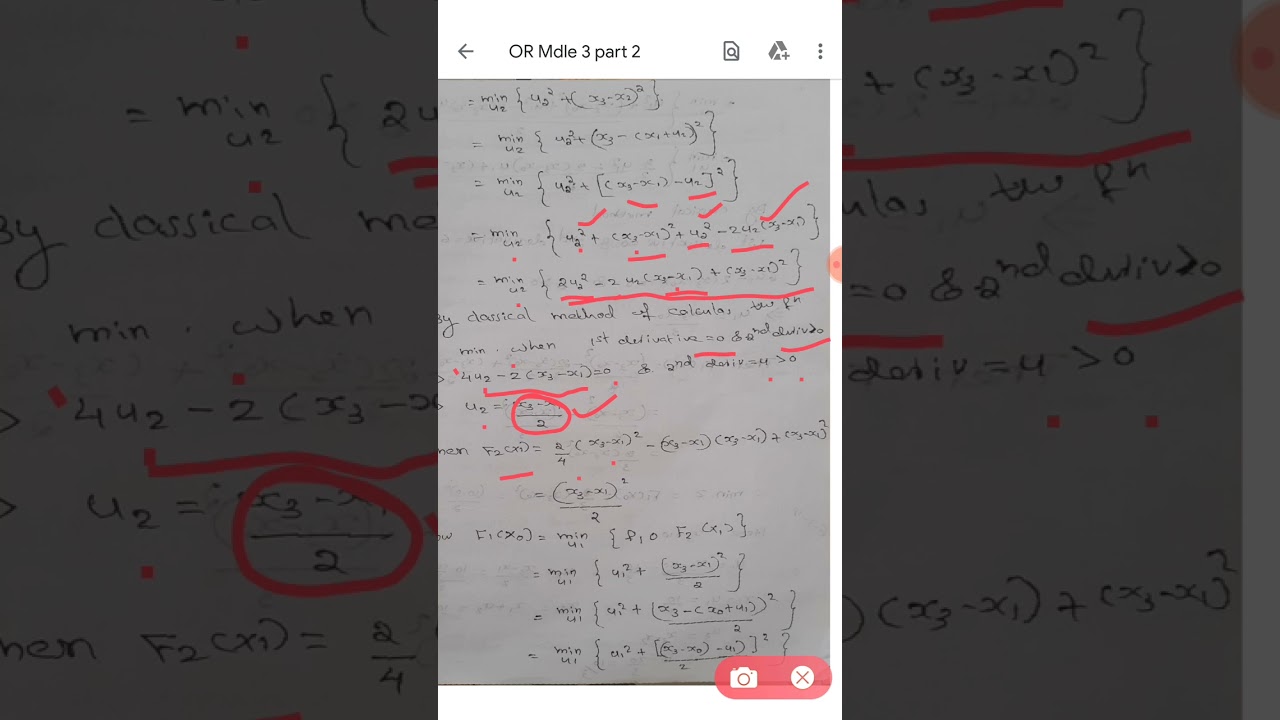 OR Mdle 3 part 2
= min u2 { u2² + (x3-x2)² }
= min u2 { u2² + (x3 - (x1+u2))² }
= min u2 { u2² + [(x3-x1) - u2]² }
= min u2 { u2² + (x3-x1)² + u2² - 2u2(x3-x1) }
= min u2 { 2u2² - 2u2(x3-x1) + (x3-x1)² }
By classical method of calculas, the fn
min. when 1st derivative=0 & 2nd deriv>0
4u2 - 2(x3-x1)=0 & 2nd deriv=4>0
u2 = x3-x1 / 2
F2(x1) = 2/4 (x3-x1)² - (x3-x1)(x3-x1) + (x3-x1)²
= (x3-x1)² / 2
F1(x0) = min u1 { f1 o F2(x1) }
= min u1 { u1² + (x3-x1)² / 2 }
= min u1 { u1² + (x3-(x0+u1))² / 2 }
= min u1 { u1² + [(x3-x0)-u1)]² / 2 }